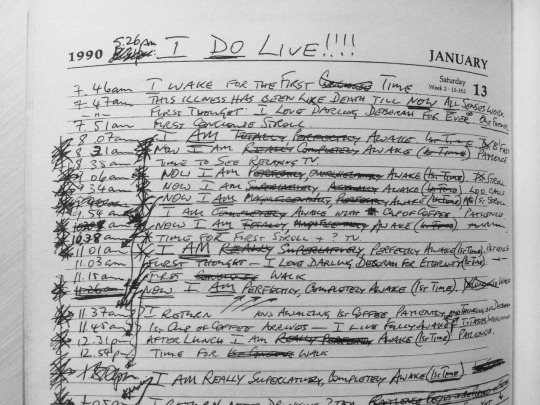 5.26pm I DO LIVE!!!!
1990 JANUARY
Saturday
Week 2 · 13-352 13
7.46am I WAKE FOR THE FIRST TIME
7.47am THIS ILLNESS HAS BEEN LIKE DEATH TILL NOW ALL SENSES WORK
-"- FIRST THOUGHT: I LOVE DARLING DEBORAH FOR EVER
7.51am FIRST CONSCIOUS STROLL
8.07am I AM TOTALLY PERFECTLY AWAKE (1st TIME)
8.31am NOW I AM REALLY COMPLETELY AWAKE (1st TIME) PATIENCE
8.38am TIME TO SEE RELAXING TV.
9.06am NOW I AM PERFECTLY OVERWHELMINGLY AWAKE (1st TIME) STROLL
9.34am NOW I AM SUPERLATIVELY ACTUALLY AWAKE (1st TIME) LOO CALL
NOW I AM AWAKE (1st TIME) STROLL
9.54am I AM COMPLETELY AWAKE WITH CUP OF COFFEE PATIENCE
NOW I AM TOTALLY, AWAKE (1st TIME)
10.38am A TIME FOR FIRST STROLL + ? TV
11.01am I AM REALLY SUPERLATIVELY PERFECTLY AWAKE (1st TIME)
11.03am FIRST THOUGHT — I LOVE DARLING DEBORAH FOR ETERNITY (1st TIME) —
11.15am FIRST WALK
11.26am NOW I AM PERFECTLY, COMPLETELY AWAKE (1st TIME) WALK
11.37am I RETURN AND AWAITING 1st COFFEE, PATIENTLY, AND THINKING OF DEBORAH
11.45am 1st CUP OF COFFEE ARRIVES — I LIVE FULLY AWAKE
12.31pm AFTER LUNCH I AM REALLY PERFECTLY AWAKE (1st TIME) PATIENCE.
12.54pm TIME FOR WALK
I AM REALLY SUPERLATIVELY, COMPLETELY AWAKE (1st TIME)
I RETURN